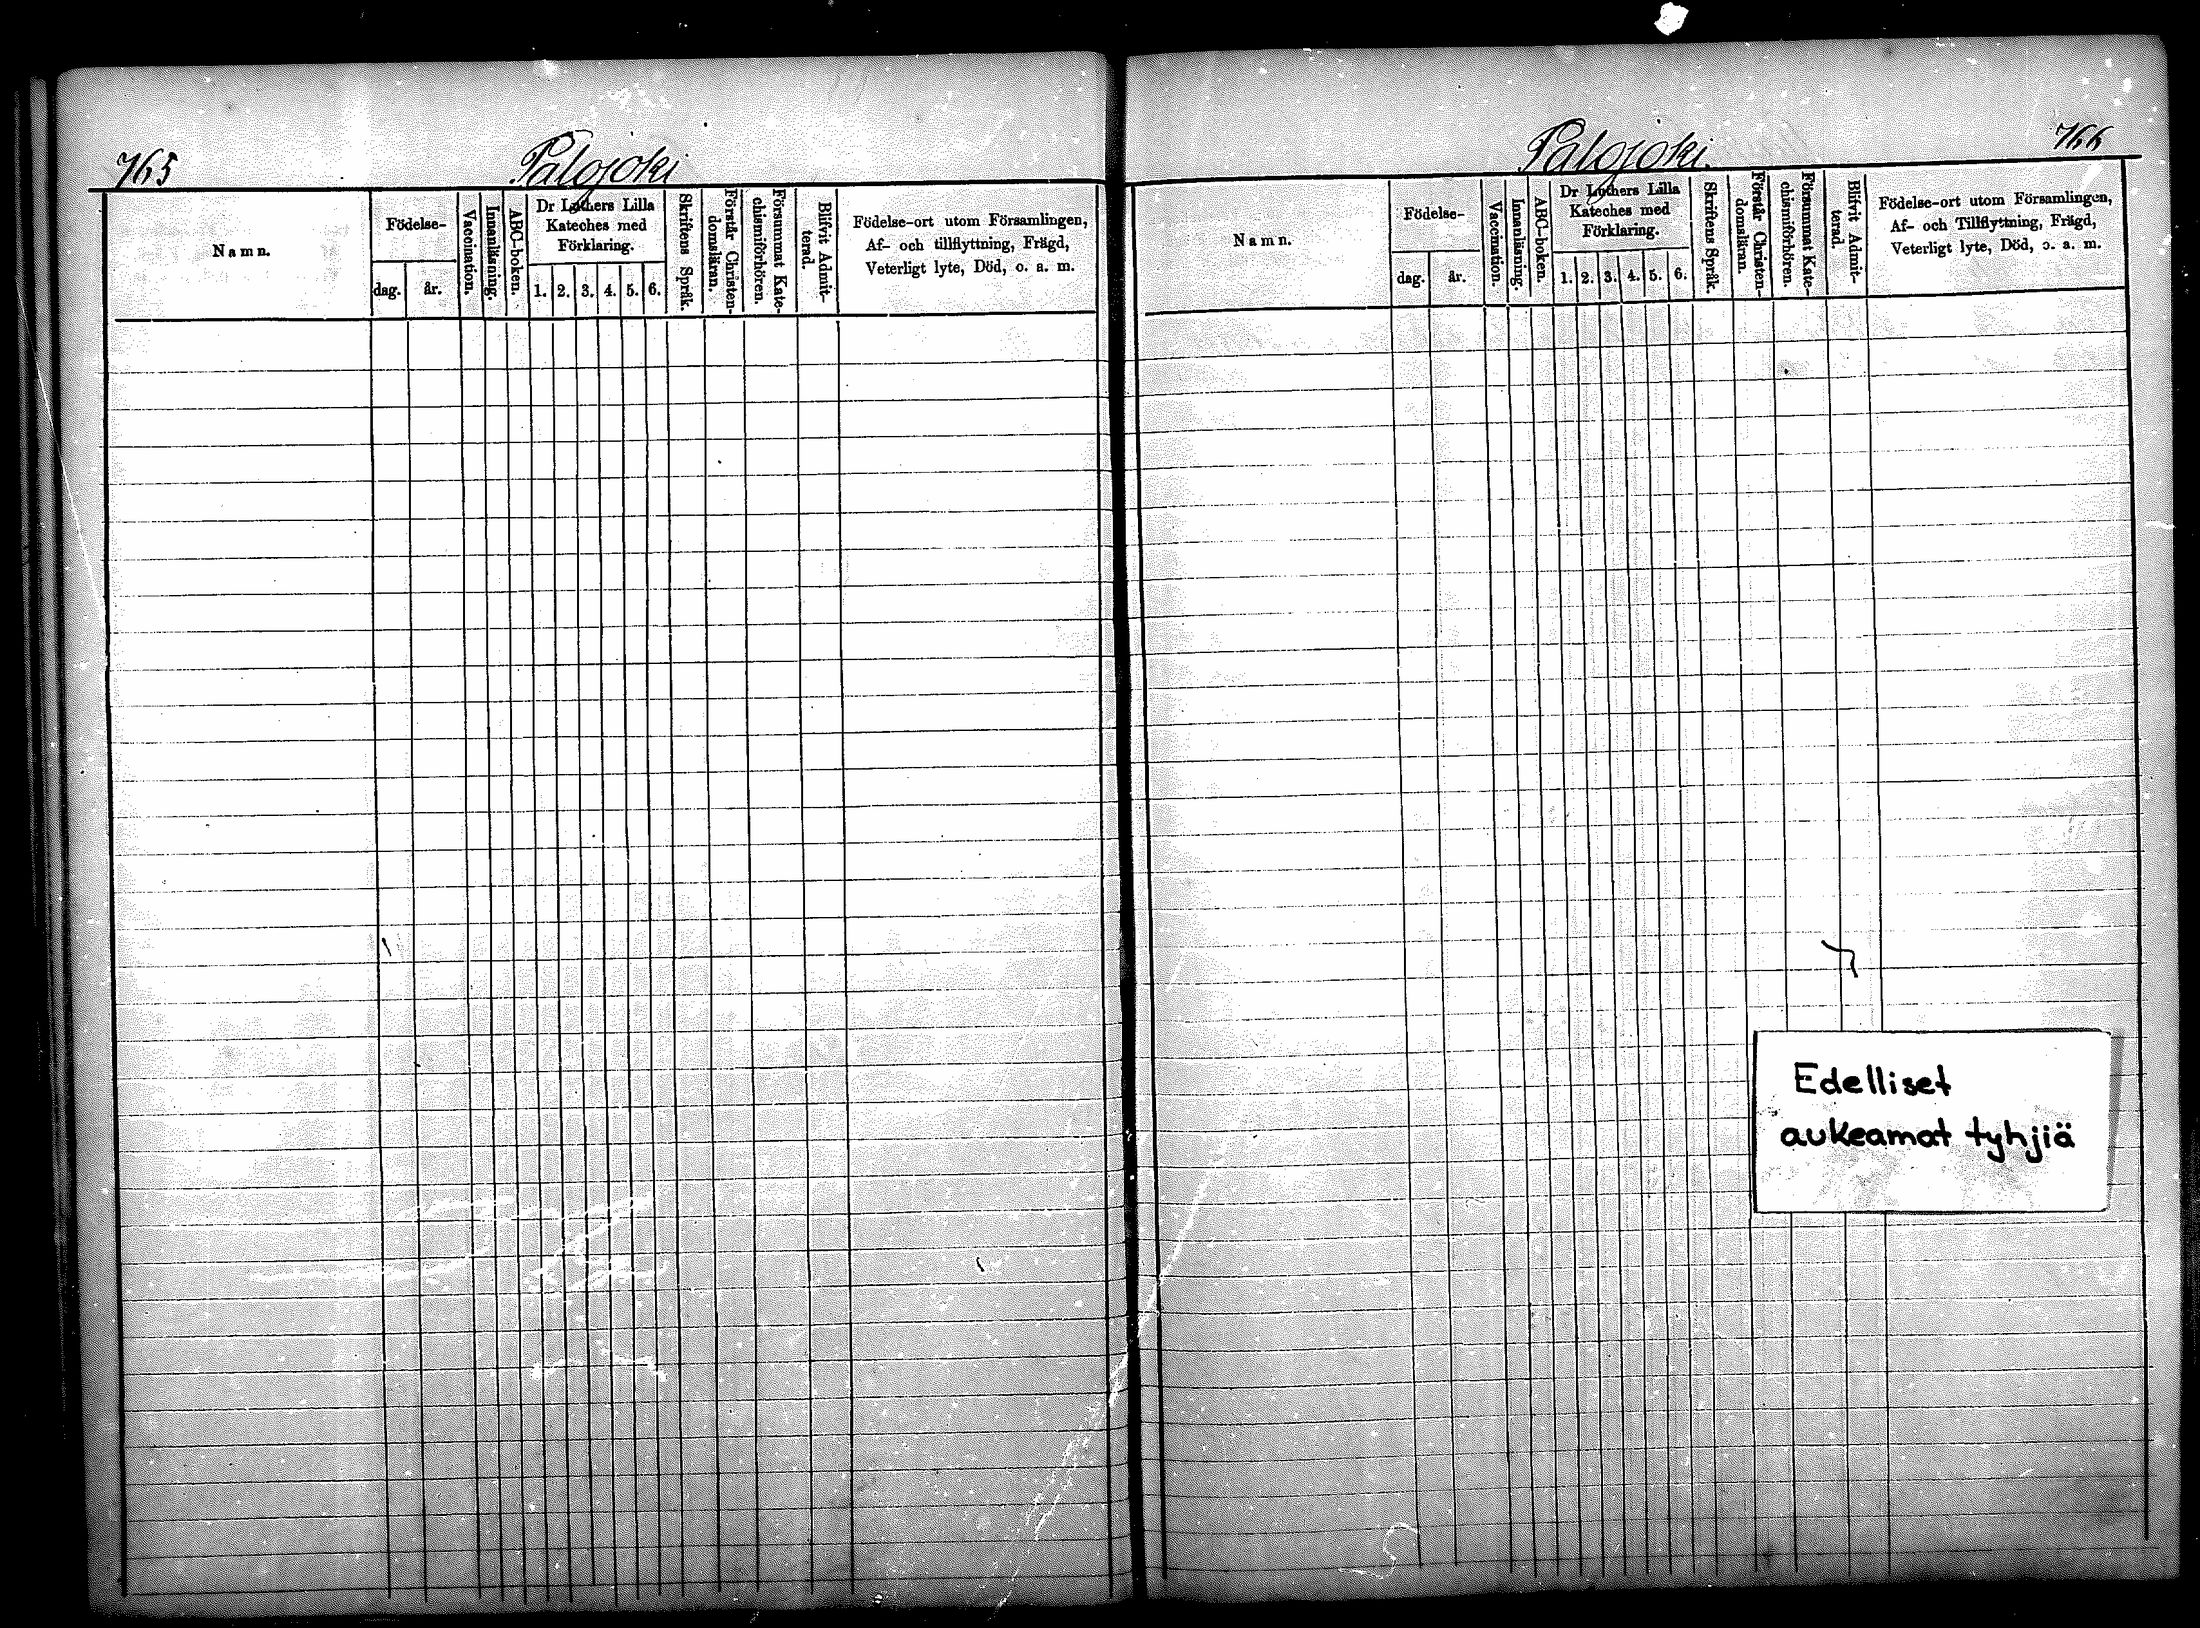 765
Palojoki
Namn.
Födelse-
dag.
år.
Vaccination.
Innanläsning.
ABC-boken.
Dr Luthers Lilla
Kateches med
Förklaring.
1. 2. 3. 4. 5. 6.
Skriftens Språk.
Förstår Christen-
domsläran.
Försummat Kate-
chismiförhören.
Blifvit Admit-
terad.
Födelse-ort utom Församlingen,
Af- och tillflyttning, Frägd,
Veterligt lyte, Död, o. a. m.
766
Palojoki.
Namn.
Födelse-
dag.
år.
Vaccination.
Innanläsning.
ABC-boken.
Dr Luthers Lilla
Kateches med
Förklaring.
1. 2. 3. 4. 5. 6.
Skriftens Språk.
Förstår Christen-
domsläran.
Försummat Kate-
chismiförhören.
Blifvit Admit-
terad.
Födelse-ort utom Församlingen,
Af- och Tillflyttning, Frägd,
Veterligt lyte, Död, o. a. m.
Edelliset
aukeamat tyhjiä